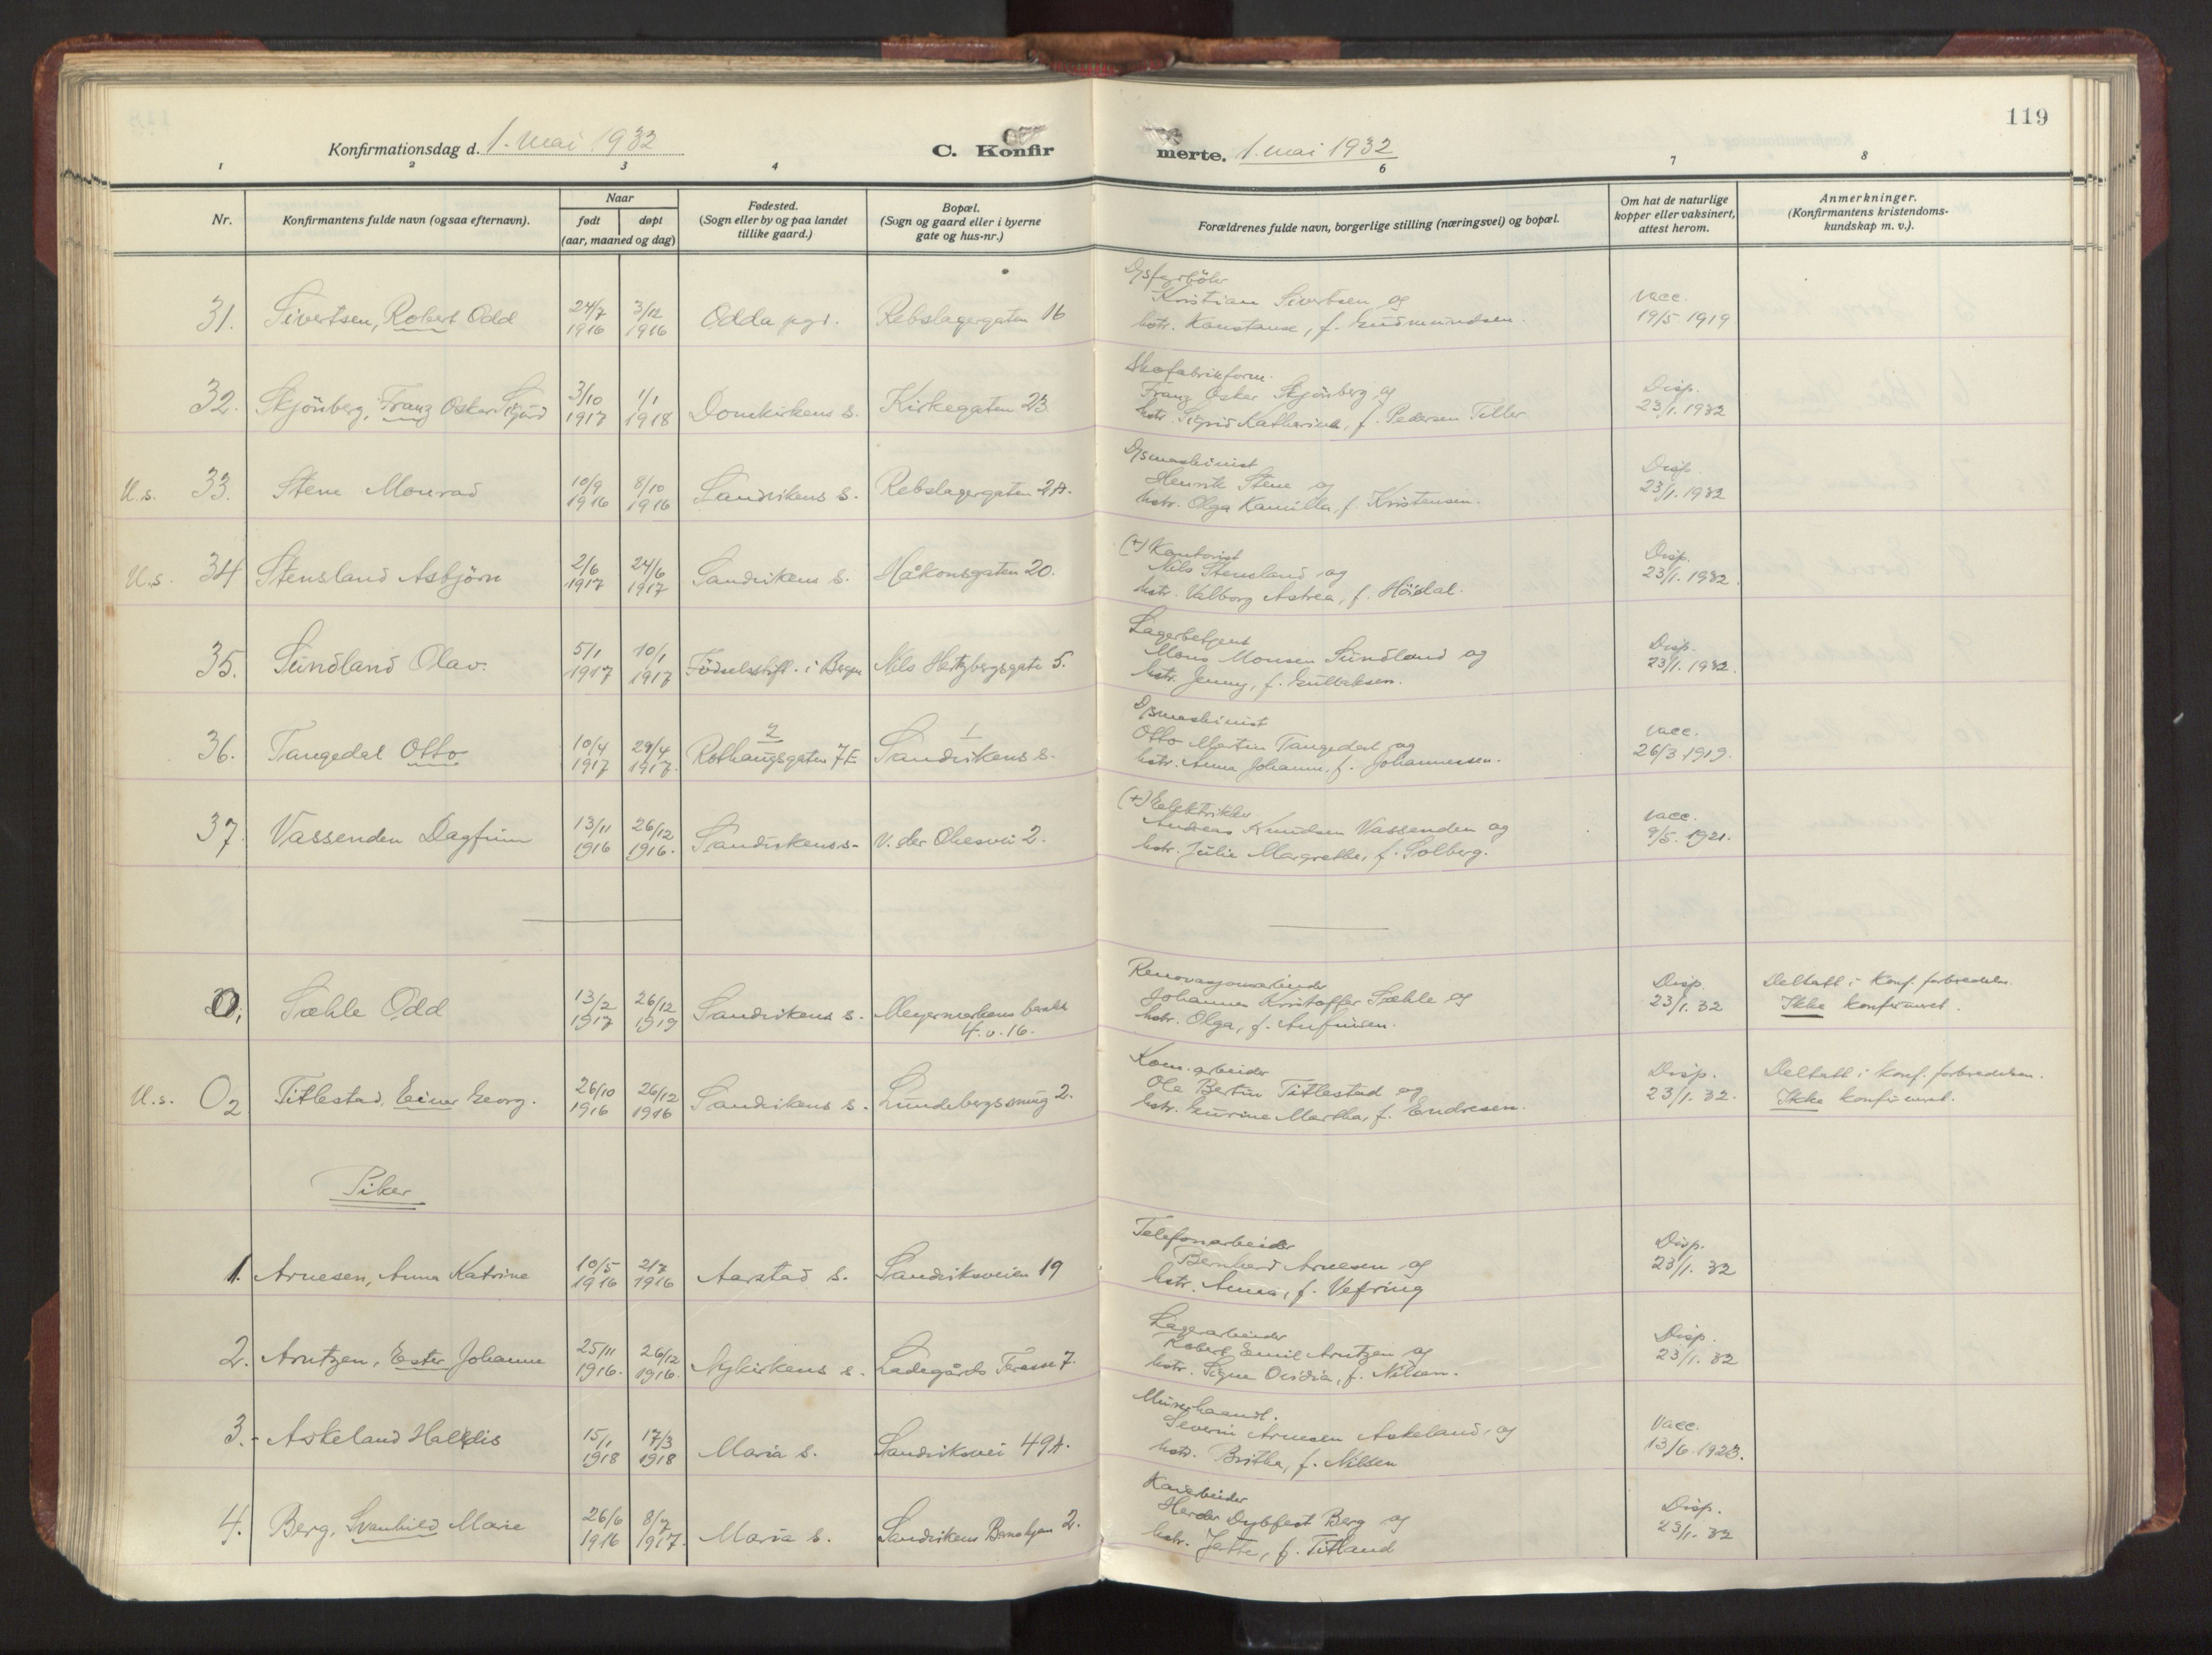 119
Konfirmationsdag d. 1. mai 1932
C. Konfir
merte. 1. mai 1932
1 2 3 4 6 7 8
Nr.
Konfirmantens fulde navn (ogsaa efternavn).
Naar
født døpt
(aar, maaned og dag)
Fødested.
(Sogn eller by og paa landet
tillike gaard.)
Bopæl.
(Sogn og gaard eller i byerne
gate og hus-nr.)
Forældrenes fulde navn, borgerlige stilling (næringsvei) og bopæl.
Om hat de naturlige
kopper eller vaksinert,
attest herom.
Anmerkninger.
(Konfirmantens kristendoms-
kundskap m. v.).
31. Sivertsen, Robert Odd 24/7 1916 3/12 1916 Odda pgd. Rebslagergaten 16
D/sfyrböter
Kristian Sivertsen og
hstr. Konstanse, f. Gudmundsen.
vacc.
19/5 1919
32. Skjönberg, Franz Oskar Sigurd 3/10 1917 1/1 1918 Domkirkens s. Kirkegaten 23
Skofabrikform.
Franz Oskar Skjönberg og
hstr. Sigrid Katharina, f. Pedersen Tiller
Disp.
23/1. 1932
U.s. 33. Stene Monrad 10/9 1916 8/10 1916 Sandvikens s. Rebslagergaten 2A.
D/smaskinist
Henrik Stene og
hstr. Olga Kamilla, f. Kristensen.
Disp.
23/1. 1932
U.s. 34 Stensland Asbjörn 2/6 1917 24/6 1917 Sandvikens s. Håkonsgaten 20.
(+) Kontorist
Nils Stensland og
hstr. Valborg Astrea, f. Höidal.
Disp.
23/1. 1932.
35. Sundland Olav. 5/1 1917 10/1 1917 Födselsstift. i Bergen Nils Hertzbergsgate 5.
Lagerbetjent
Mons Monsen Sundland og
hstr. Jenny, f. Gullaksen.
Disp.
23/1. 1932.
36. Tangedal Otto 10/4 1917 29/4 1917. 2 Rothaugsgaten 7E 1 Sandvikens s.
D/smaskinist
Otto Martin Tangedal og
hstr. Anna Johanne, f. Johannessen.
vacc.
26/3 1919.
37. Vassenden Dagfinn 13/11 1916 26/12 1916. Sandvikens s. V. der Ohesvei 2.
(+) Elektriker
Andreas Knudsen Vassenden og
hstr. Julie Margrethe, f. Solberg.
vacc.
9/5. 1921.
0, Sæhle Odd 13/2 1917 26/12 1919 Sandvikens s. Meyermarkens
4. v. 16.
Renovasjonsarbeider
Johannes Kristoffer Sæhle og
hstr. Olga, f. Anfinsen.
Disp.
23/1. 32
Deltatt i Konf. forbredelsen.
Ikke konfirmert.
U.s. O2 Titlestad, Einar Georg. 26/10 1916 26/12 1916 Sandvikens s. Lundebergsmug 2.
Kom. arbeider
Ole Bertin Titlestad og
hstr. Gurine Martha, f. Endresen.
Disp.
23/1. 32.
Deltatt i konf. forbredelsen.
Ikke konfirmert.
Piker
1. Arnesen, Anna Katrine 10/5 1916 2/7 1916 Aarstad s. Sandviksveien 19
Telefonarbeider
Bernhard Arnesen og
hstr. Anna, f. Vefring
Disp.
23/1. 32
2. Arntzen, Ester Johanne 25/11 1916. 26/12 1916. Nykirkens s. Ladegårds Terasse 7.
Lagerarbeider
Robert Emil Arntzen og
hstr. Signe Ovidia, f. Nilsen.
Disp.
23/1. 32
3. Askeland Halldis 15/1 1918 17/3 1918 Maria s. Sandviksvei 49A.
Murerhaandl.
Severin Arnesen Askeland, og
hstr. Britha, f. Nilsen
Vacc.
13/6 1923.
4. Berg, Svanhild Marie 26/6 1916 8/7 1917. Maria s. Sandvikens Barnehjem 2.
Herder Dybfest Berg og
hstr. Jette, f. Titland
Disp.
23/1. 32